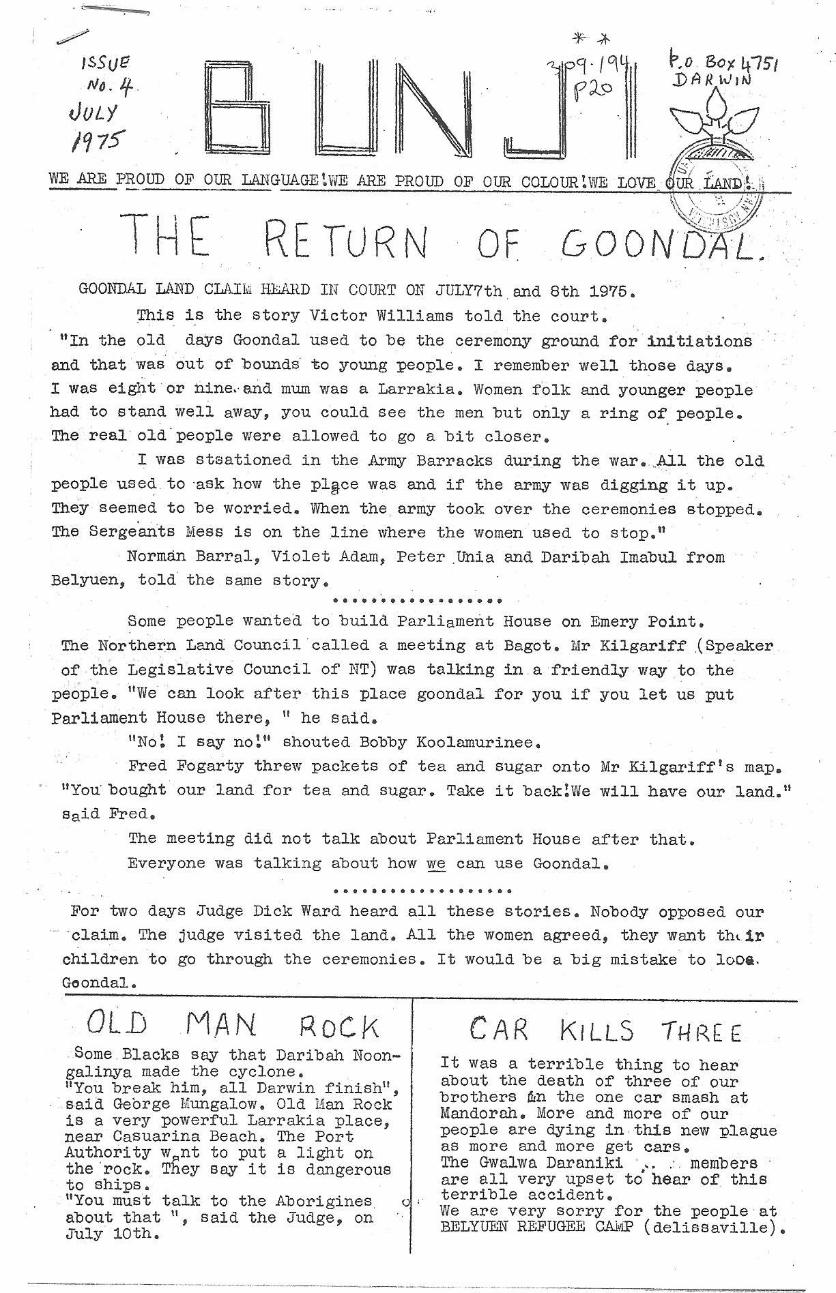 ISSUE
No. 4
JULY
1975
BUNJI
* *
309.194
P20
P.O. BOX 4751
DARWIN
WE ARE PROUD OF OUR LANGUAGE!WE ARE PROUD OF OUR COLOUR!WE LOVE OUR LAND!
THE RETURN OF GOONDAL.
GOONDAL LAND CLAIM HEARD IN COURT ON JULY7th and 8th 1975.
This is the story Victor Williams told the court.
"In the old days Goondal used to be the ceremony ground for initiations
and that was out of bounds to young people. I remember well those days.
I was eight or nine. and mum was a Larrakia. Women folk and younger people
had to stand well away, you could see the men but only a ring of people.
The real old people were allowed to go a bit closer.
I was stsationed in the Army Barracks during the war. All the old
people used to ask how the place was and if the army was digging it up.
They seemed to be worried. When the army took over the ceremonies stopped.
The Sergeants Mess is on the line where the women used to stop."
Norman Barral, Violet Adam, Peter Unia and Daribah Imabul from
Belyuen, told the same story.
..................
Some people wanted to build Parliament House on Emery Point.
The Northern Land Council called a meeting at Bagot. Mr Kilgariff (Speaker
of the Legislative Council of NT) was talking in a friendly way to the
people. "We can look after this place goondal for you if you let us put
Parliament House there, " he said.
"No! I say no!" shouted Bobby Koolamurinee.
Fred Fogarty threw packets of tea and sugar onto Mr Kilgariff's map.
"You bought our land for tea and sugar. Take it back!We will have our land."
said Fred.
The meeting did not talk about Parliament House after that.
Everyone was talking about how we can use Goondal.
...................
For two days Judge Dick Ward heard all these stories. Nobody opposed our
claim. The judge visited the land. All the women agreed, they want their
children to go through the ceremonies. It would be a big mistake to loose
Goondal.
OLD MAN ROCK
Some Blacks say that Daribah Noon-
galinya made the cyclone.
"You break him, all Darwin finish",
said George Mungalow. Old Man Rock
is a very powerful Larrakia place,
near Casuarina Beach. The Port
Authority want to put a light on
the rock. They say it is dangerous
to ships.
"You must talk to the Aborigines
about that ", said the Judge, on
July 10th.
CAR KILLS THREE
It was a terrible thing to hear
about the death of three of our
brothers in the one car smash at
Mandorah. More and more of our
people are dying in this new plague
as more and more get cars.
The Gwalwa Daraniki members
are all very upset to hear of this
terrible accident.
We are very sorry for the people at
BELYUEN REFUGEE CAMP (delissaville).